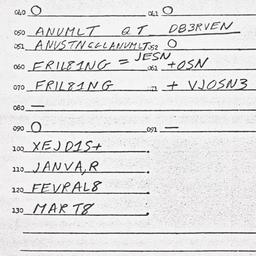 040 O 041 O
050 ANUMLT QT DB3RVEN
051 ANVSTNGGLANUMLT 052 O
060 FRIL81NG = JESN 061 +OSN
070 FRIL81NG 071 + VJOSN3
080 —
090 O 091 —
100 XEJD1S+
110 JANVA,R
120 FEVRAL8
130 MART8